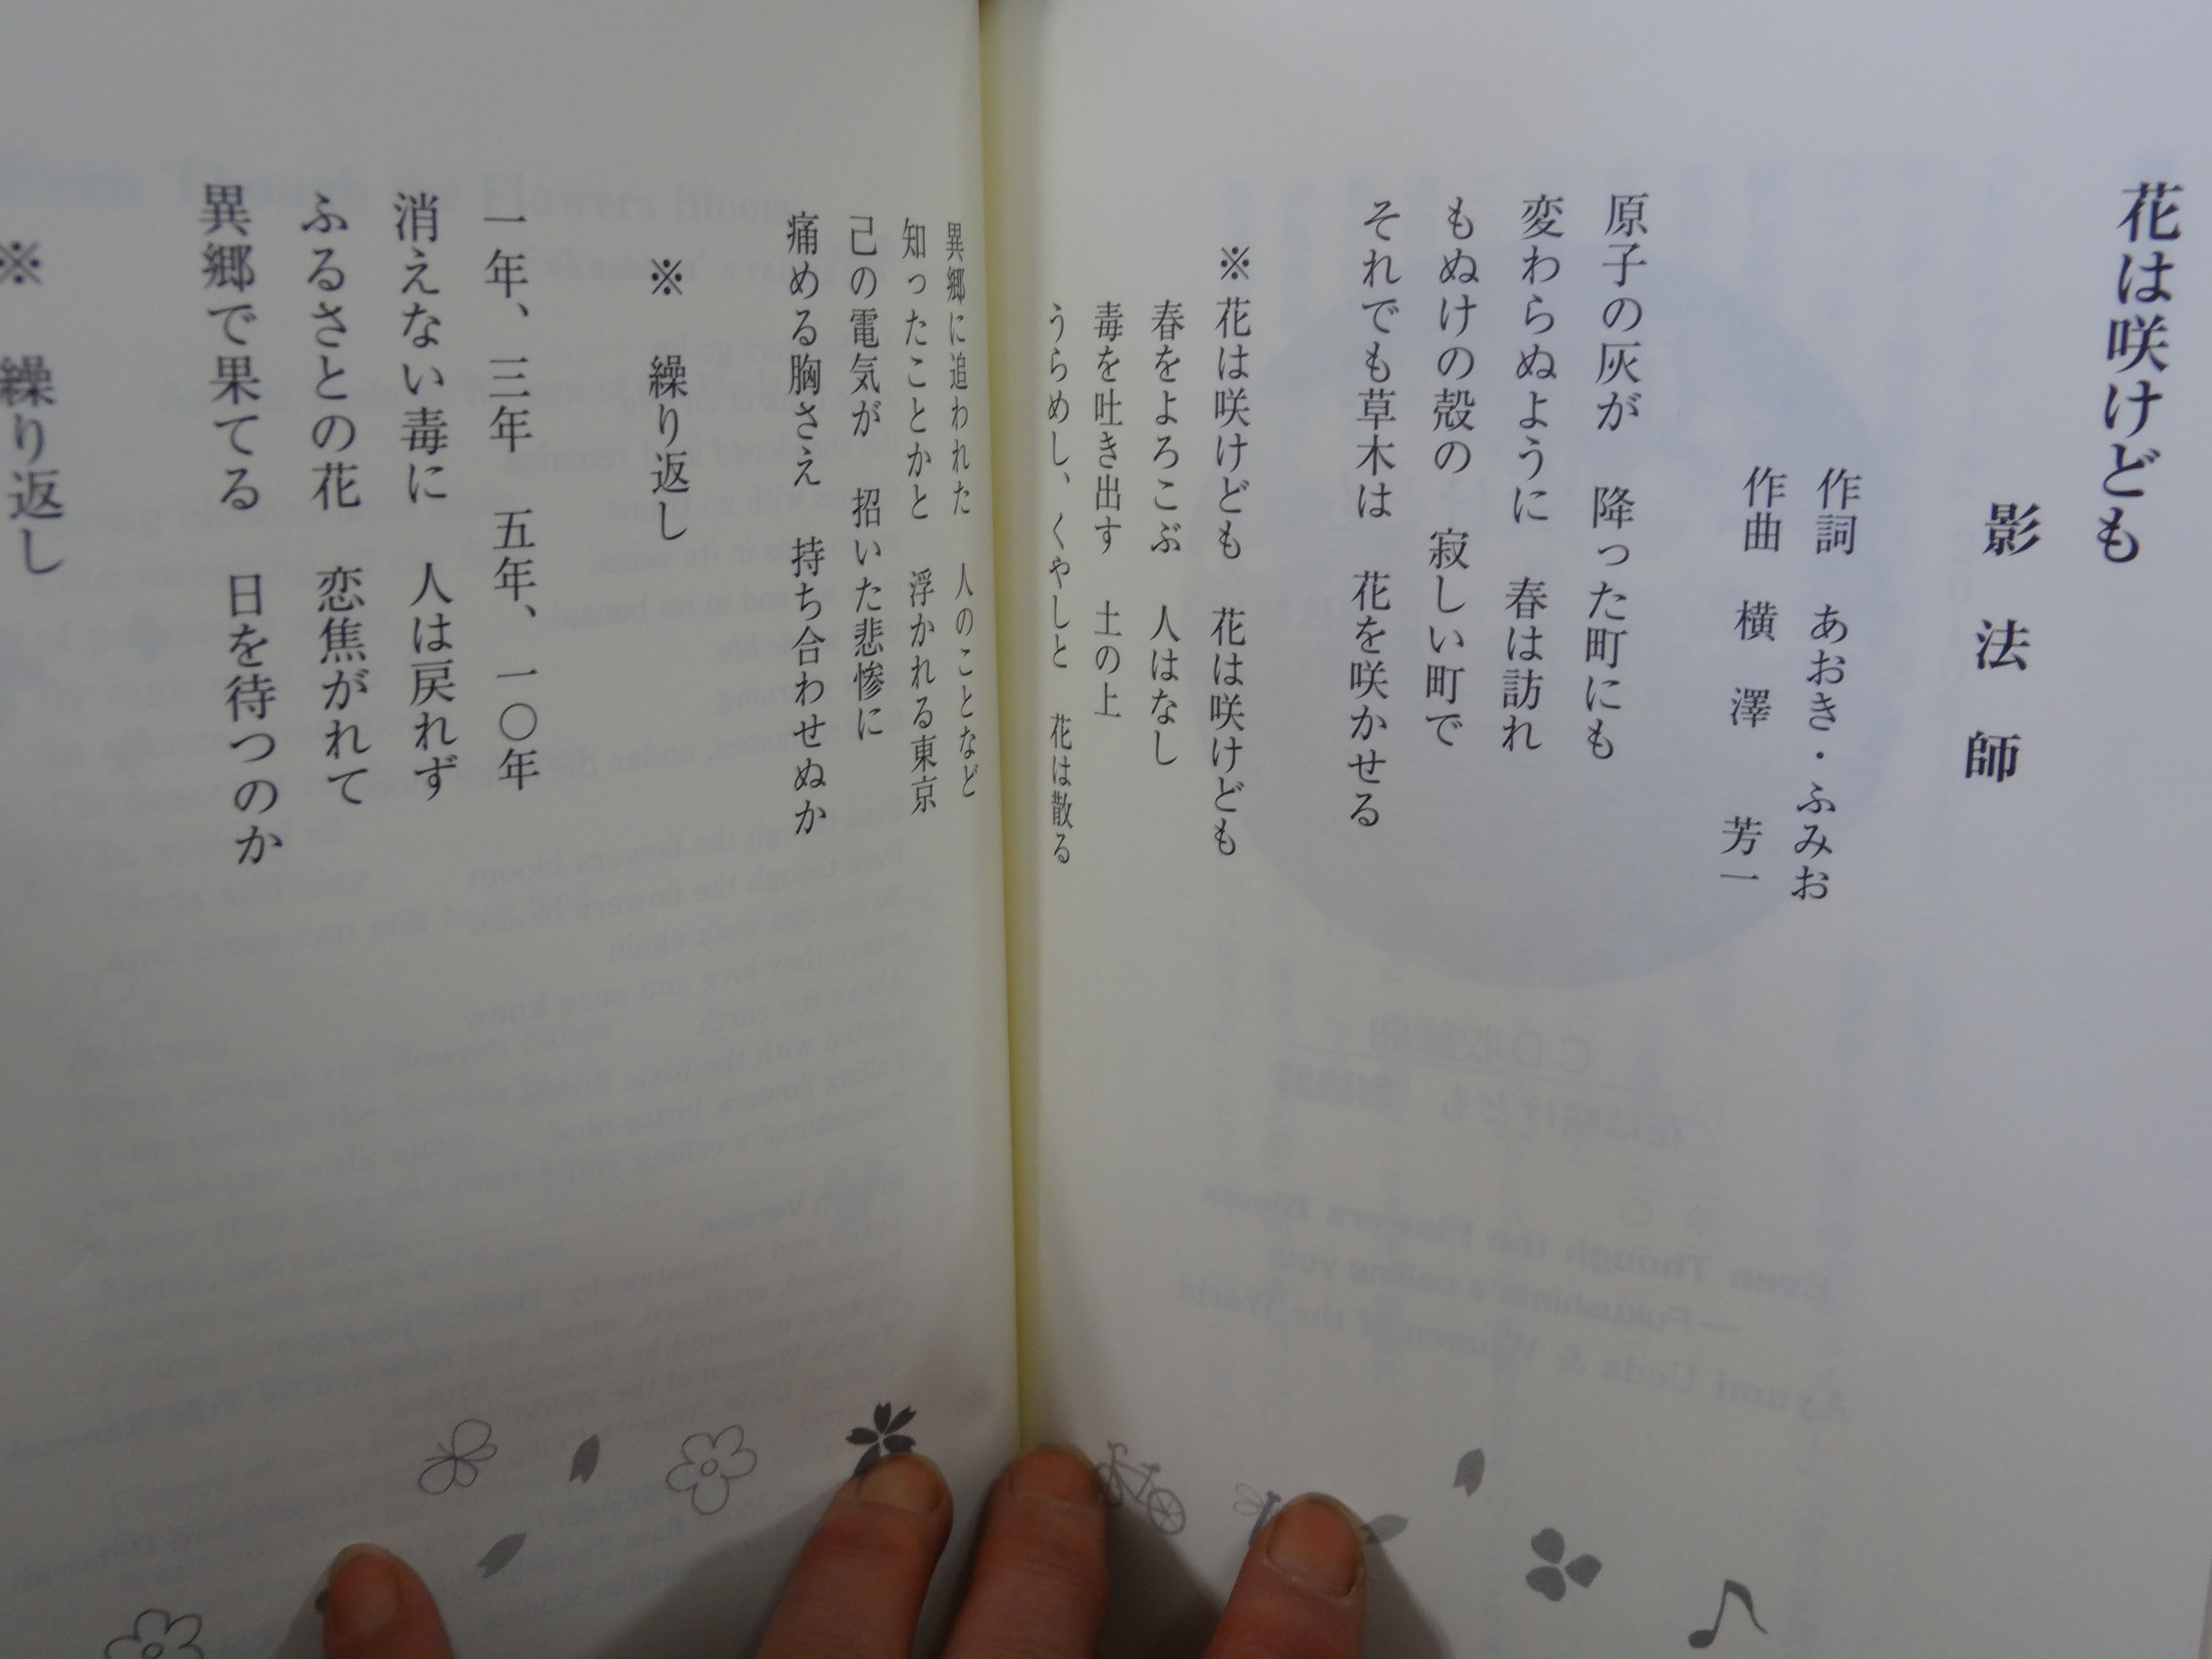 花は咲けども
影法師
作詞　あおき・ふみお
作曲　横澤　芳一
原子の灰が　降った町にも
変わらぬように　春は訪れ
もぬけの殻の　寂しい町で
それでも草木は　花を咲かせる
※花は咲けども　花は咲けども
春をよろこぶ　人はなし
毒を吐き出す　土の上
うらめし、くやしと　花は散る
異郷に追われた　人のことなど
知ったことかと　浮かれる東京
己の電気が　招いた悲惨に
痛める胸さえ　持ち合わせぬか
※　繰り返し
一年、三年　五年、一〇年
消えない毒に　人は戻れず
ふるさとの花　恋焦がれて
異郷で果てる　日を待つのか
※　繰り返し